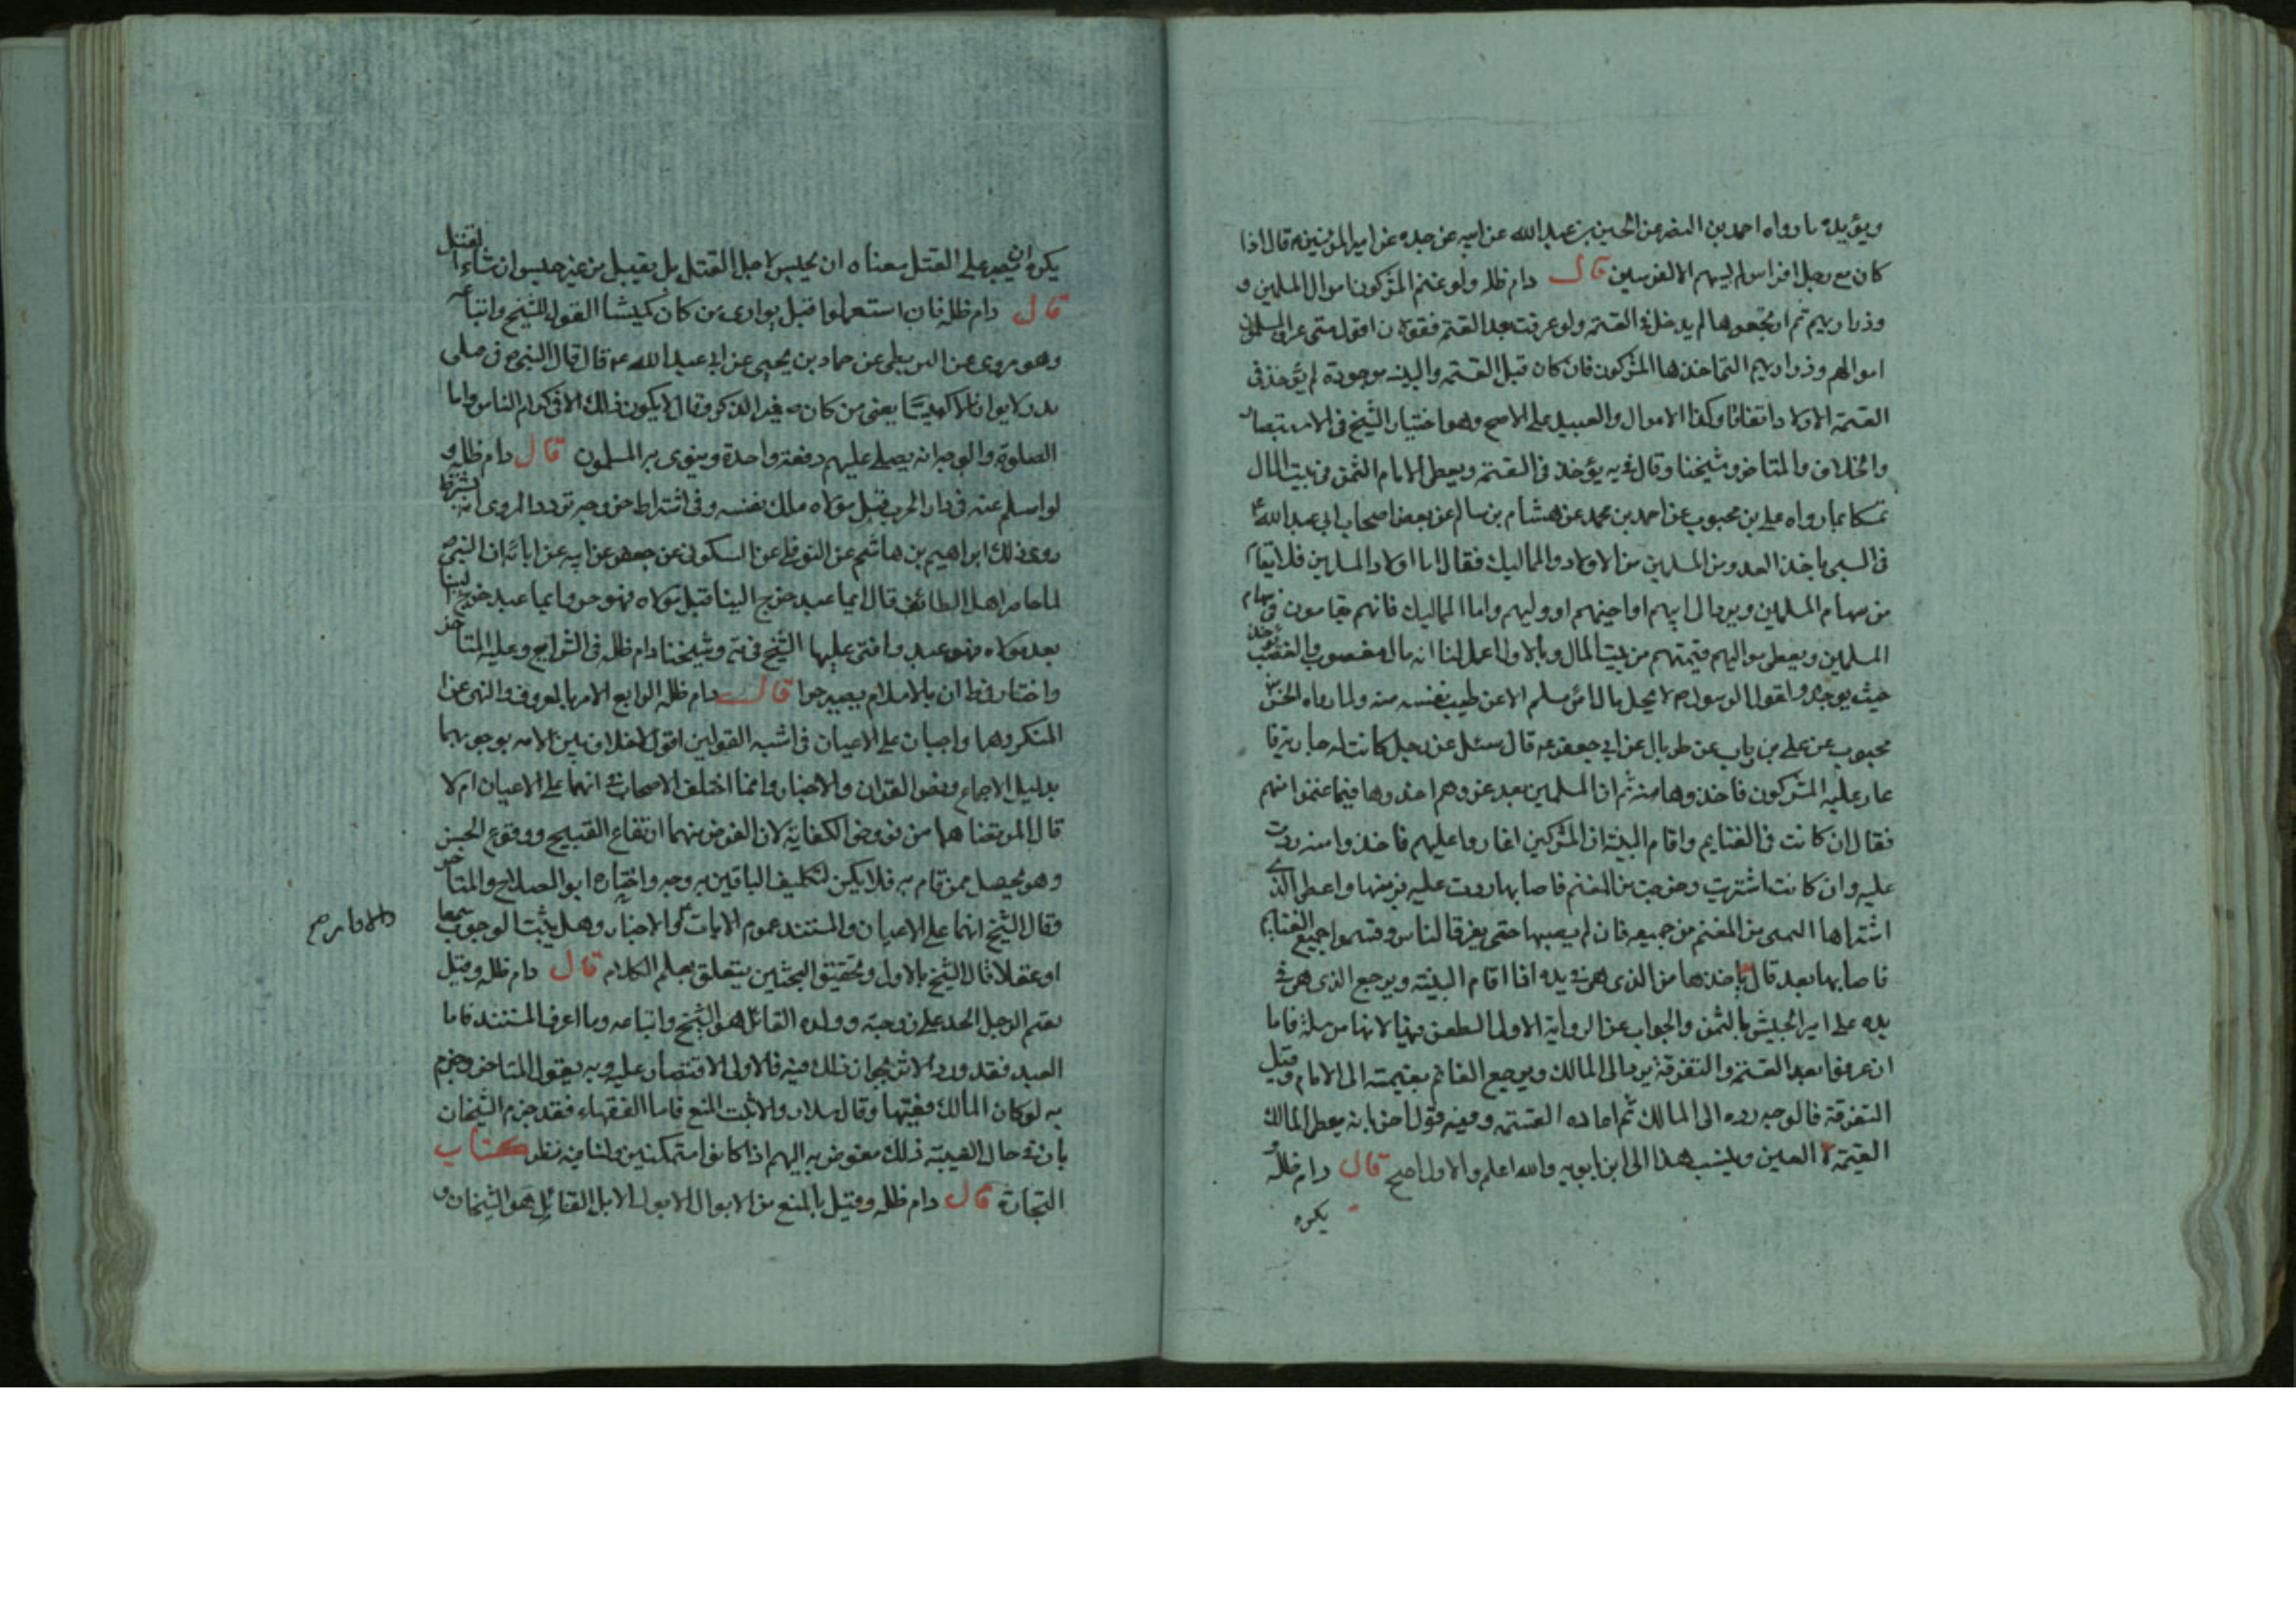 ويؤيده ما رواه احمد بن النضر عن الحسين بن عبد الله عن ابيه عن جده عن امير المؤمنين ع قال اذا
كان مع رجل افراس لم يسهم الا لفرسين قال دام ظله ولو غنم المشركون اموال المسلمين و
وذراريهم ثم ارتجعوها لم يدخل في القسمة ولو عرفت بعد القسمة فقولان اقول متى عرف المسلمون
اموالهم وذراريهم التي اخذها المشركون فان كان قبل القسمة والبينه موجودة لم يؤخذ في
القسمة الاولاد اتفاقا وكذا الاموال والعبيد على الاصح وهو اختيار الشيخ في الاستبصار
والخلاف والمتاخر وشيخنا وقال في يه يؤخذ في القسمة ويعطى الامام الثمن من بيت المال
تمسكا بما رواه علي بن محبوب عن احمد بن محمد عن هشام بن سالم عن بعض اصحاب ابي عبد الله ع
في السبي ياخذ العدو من المسلمين من الاولاد والمماليك فقال اما اولاد المسلمين فلا يقام
من سهام المسلمين ويرد الى ابيهم او اخيهم او وليهم واما المماليك فانهم يقامون في سهام
المسلمين ويعطى مواليهم قيمتهم من بيت المال وبالاول اعمل لنا انه مال مغصوب والغصب يؤخذ
حيث يوجد ولقول الرسول ص لا يحل مال امرئ مسلم الا عن طيب نفسه منه ولما رواه الحسن بن
محبوب عن علي بن رياب عن طربال عن ابي جعفر ع قال سئل عن رجل كانت له جارية فا
غار عليه المشركون فاخذوها منه ثم ان المسلمين بعد غزوهم اخذوها فيما غنموا منهم
فقال ان كانت في الغنايم واقام البينة ان المشركين اغاروا عليهم فاخذوا منه ردت
عليه وان كانت اشتريت وخرجت من المغنم فاصابها ردت عليه برمتها واعطى الذي
اشتراها الثمن من المغنم من جميعه فان لم يصبها حتى يفرق الناس وقسموا جميع الغنايم
فاصابها بعد قال ياخذها من الذي هي في يده اذا اقام البينة ويرجع الذي هي في
يده على امير الجيش بالثمن والجواب عن الرواية الاولى الطعن فيها لانها مرسلة فاما
ان عرفوا بعد القسمة والتفرقة يرد الى المالك ويرجع الغانم بقيمته الى الامام وقبل
التفرقة فالوجه رده الى المالك ثم اعاده القسمة وفيه قول اخر بانه يعطى المالك
القيمة لا العين وينسب هذا الى ابن ابويه والله اعلم والاول اصح قال دام ظله
يكره
يكره ان يصبر على القتل معناه ان يحبس لاجل القتل بل يقتل من غير حبس ان شاء القتل
قال دام ظله فان استعملوا قيل يوارى من كان كميشا القول للشيخ واتباعه
وهو مروى عن البزنطي عن حماد بن يحيى عن ابي عبد الله ع قال قال النبي ص في قتلى
بدر لا يوارى الا كميشا يعنى من كان صغير الذكر وقال لا يكون ذلك الا في كرام الناس واما
الصلوة والوجه انه يصلى عليهم دفعة واحدة وينوى بر المسلمون قال دام ظله و
لو اسلم عبد في دار الحرب قبل مولاه ملك نفسه وفي اشتراط خروجه تردد المروى انه يشترط
روى ذلك ابراهيم بن هاشم عن النوفلي عن السكوني عن جعفر عن ابيه عن ابائه ان النبي ص
لما حاصر اهل الطائف قال ايما عبد خرج الينا قبل مولاه فهو حر وايما عبد خرج الينا
بعد مولاه فهو عبد وافتى عليها الشيخ في يه وشيخنا دام ظله في الشرايع وعليه المتاخر
واختار في ط ان بالاسلام يصير حرا قال دام ظله الرابع الامر بالمعروف والنهي عن
المنكر وهما واجبان على الاعيان في اشبه القولين اقول لا خلاف بين الامه بوجوبهما
بدليل الاجماع ونص القران والاخبار وانما اختلف الاصحاب في انهما على الاعيان ام لا
قال المرتضى هما من فروض الكفاية لان الغرض منهما ارتفاع القبيح ووقوع الحسن
وهو يحصل بمن قام به فلا يكن لتكليف الباقين به وجه واختاره ابو الصلاح والمتاخر
وقال الشيخ انهما على الاعيان والمستند عموم الايات والاخبار وهل يثبت الوجوب سمعا
والاوامر صح
او عقلا قال الشيخ بالاول وتحقيق البحثين يتعلق بعلم الكلام قال دام ظله وقيل
يقيم الرجل الحد على زوجته وولده القائل هو الشيخ واتباعه وما اعرف المستند فاما
العبد فقد ورد الاثر بجواز ذلك فيه فالاولى الاقتصار عليه وبه يقول المتاخر وجزم
به لو كان المالك فقيها وقال سلار والاثبت المنع فاما الفقهاء فقد جزم الشيخان
بان في حال الغيبة ذلك مفوض به اليهم اذا كانوا متمكنين ولنا فيه نظر كتاب
التجارة قال دام ظله وقيل بالمنع من الابوال الا بول الابل القائل هو الشيخان و